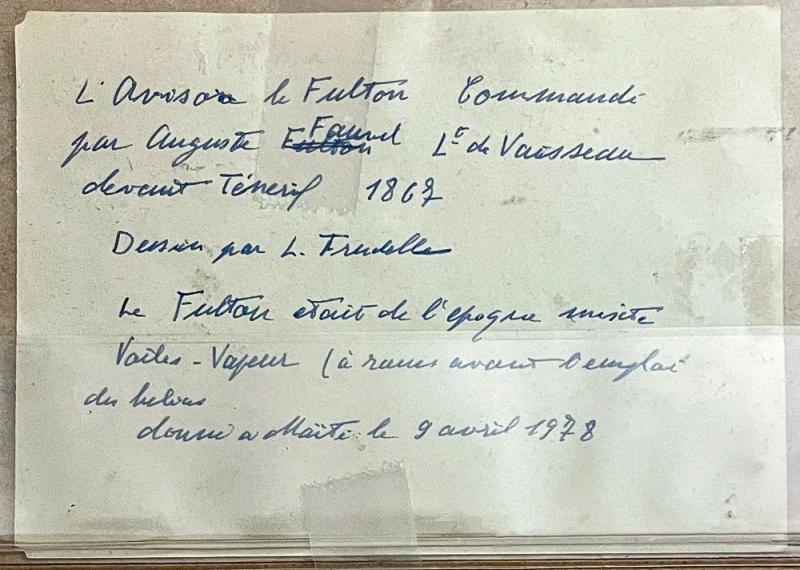 L'Aviso le Fulton Commandé
par Auguste Faurel Lt de Vaisseau
devant Ténerif 1867
Dessin par L. Fredelle
Le Fulton était de l'époque mixte
Voiles-Vapeur (à roues avant l'emploi
des helices
donné a Maïté le 9 avril 1978